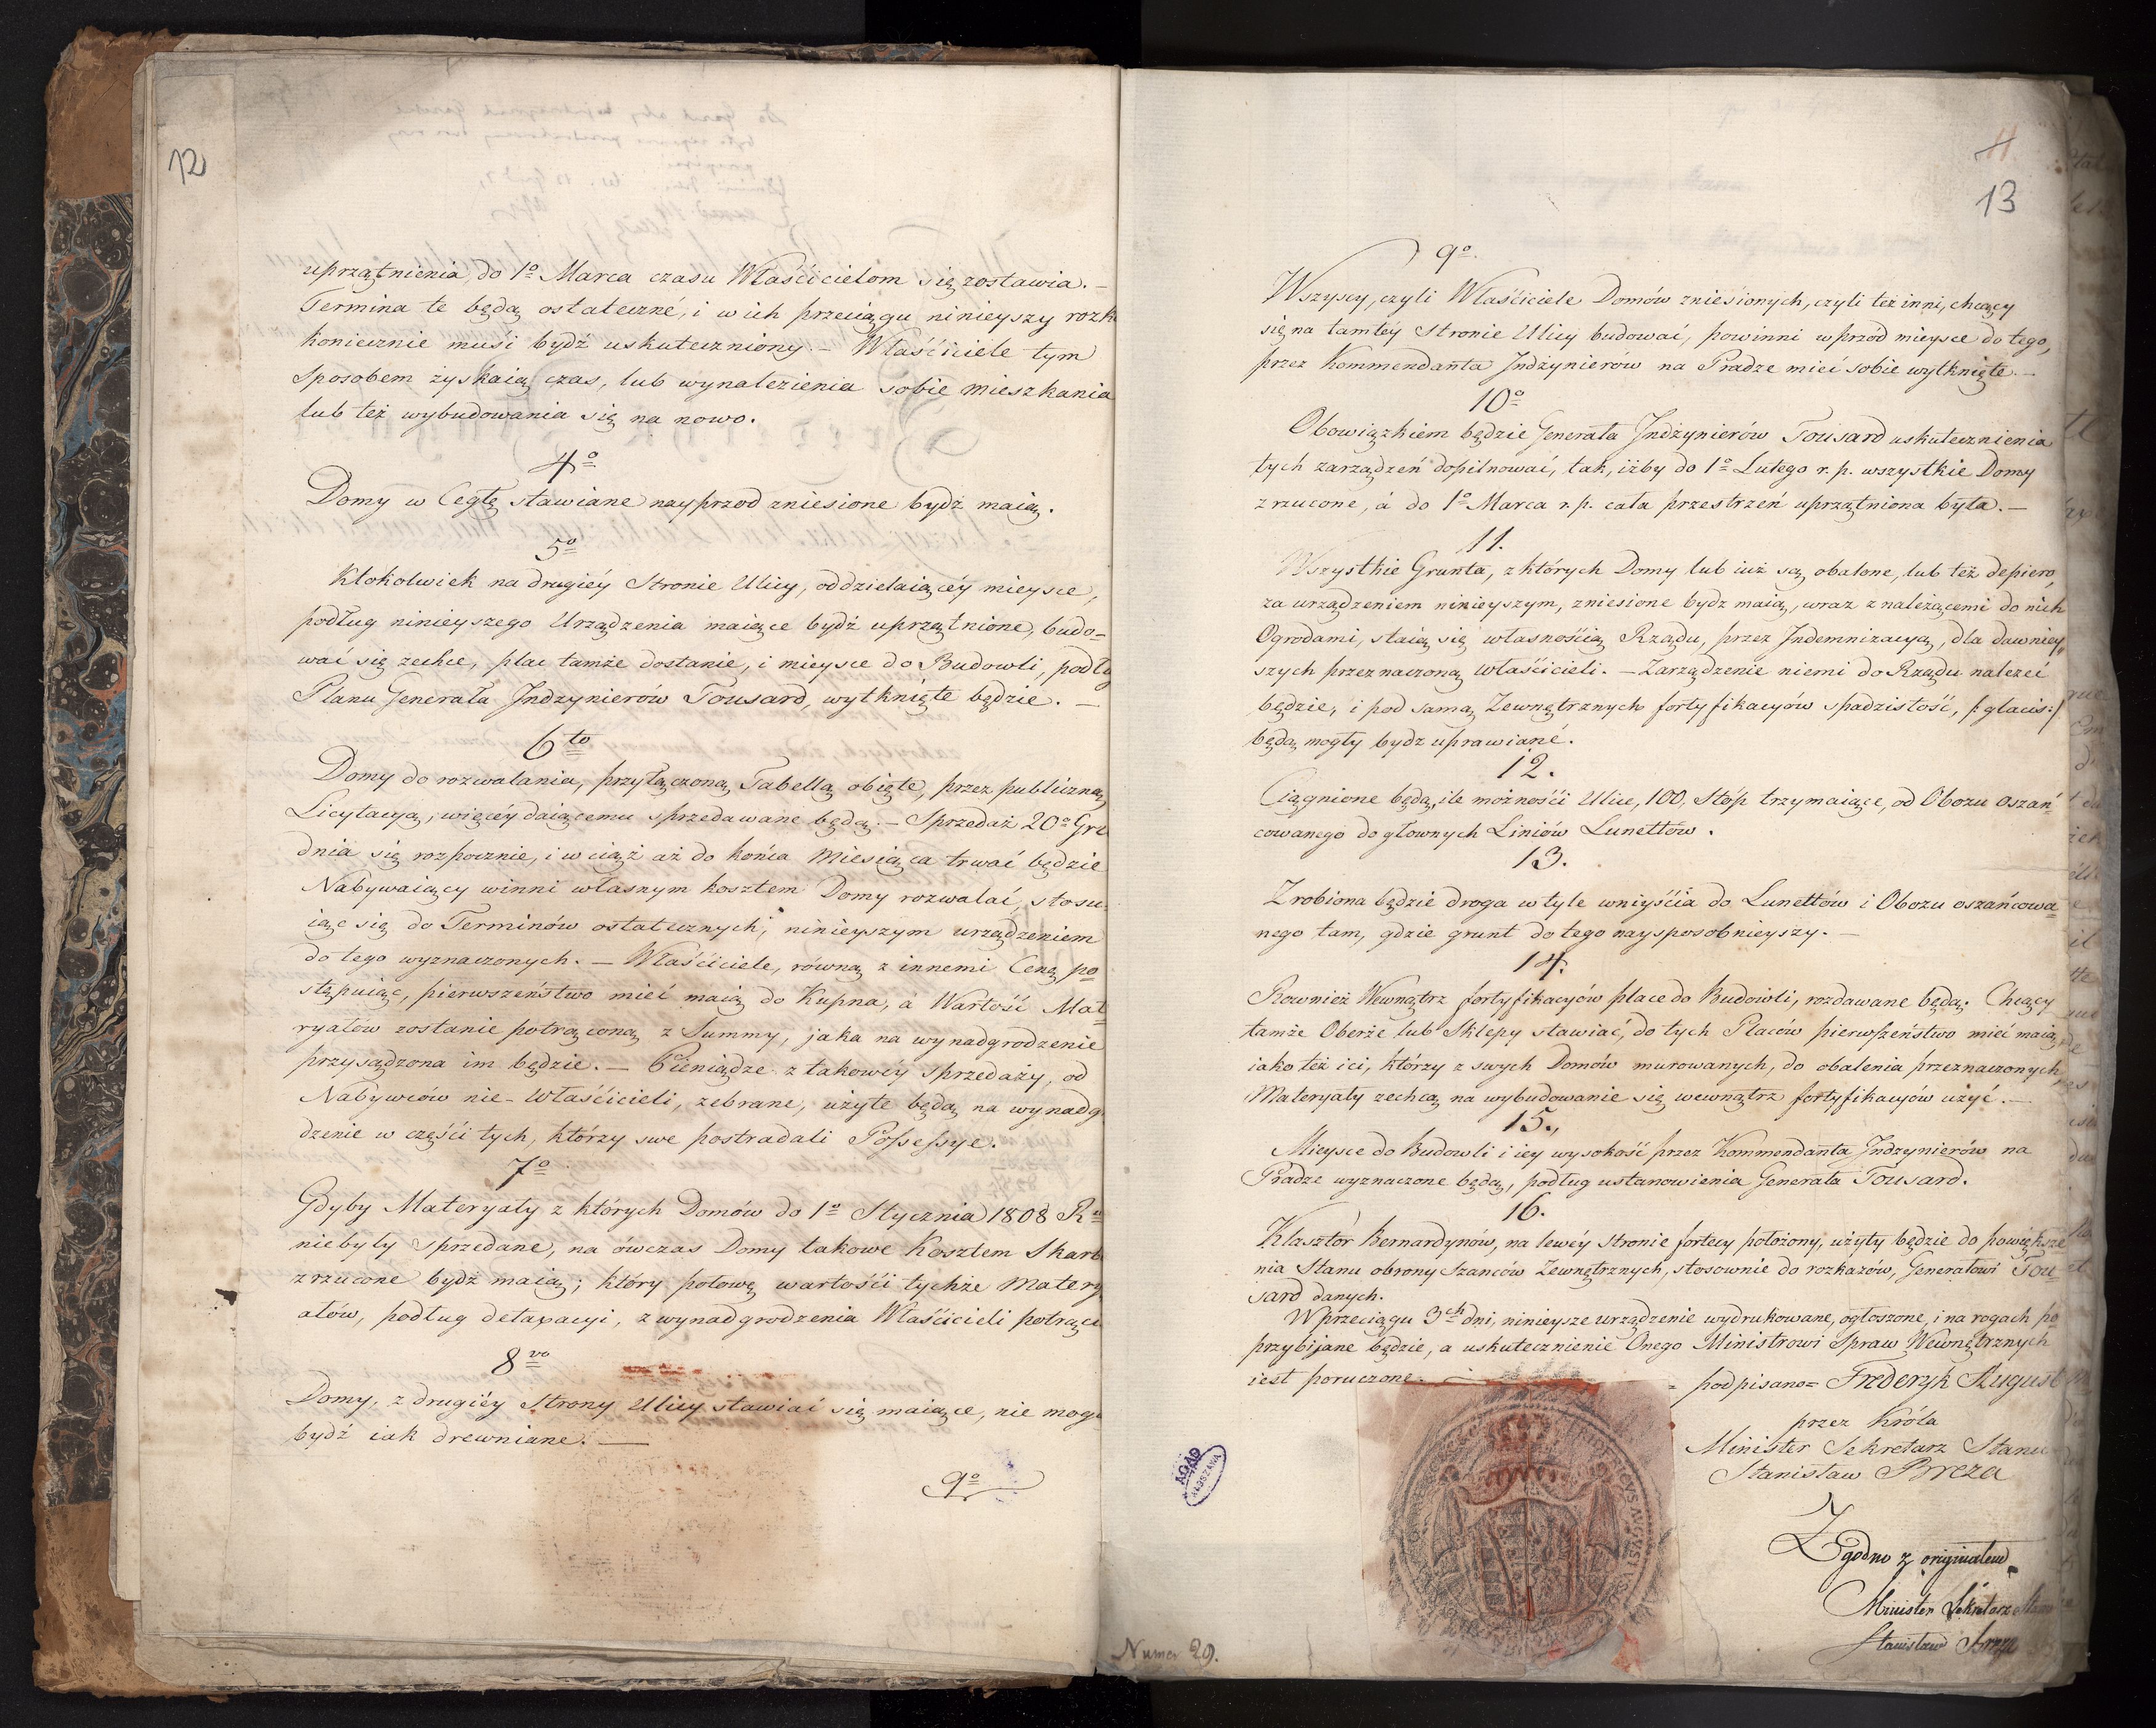 12
uprzątnienia, do 1º Marca czasu Właścicielom się zostawia. —
Termina te będą ostateczné, i w ich przeciągu ninieyszy rozk
koniecznie musi bydź uskuteczniony. — Właściciele tym
Sposobem zyskaią czas, lub wynalezienia sobie mieszkania
lub też wybudowania się na nowo.
4º
Domy w Cegłę stawiane nayprzod zniesione bydź maią.
5º
Ktokolwiek na drugiéy Stronie Ulicy, oddzielaiącéy mieysce,
podług ninieyszego Urządzenia maiące bydź uprzątnione, budo=
wać się zechce, plac tamże dostanie, i mieysce do Budowli, podłu
Planu Generała Jndzynierów Tousard, wytknięte będzie. —
6to
Domy do rozwalania, przyłączoną Tabellą obięte, przez publiczną
Licytacyą, więcéy daiącemu sprzedawane będą. — Sprzedaż 20º Gru
dnia się rozpocznie, i wciąż aż do końca Miesiąca trwać będzie
Nabywaiący winni własnym kosztem Domy rozwalać, stosu=
iąc się do Terminów ostatecznych, ninieyszym urządzeniem
do tego wyznaczonych. — Właściciele, równą z innemi Cenę po
stępuiąc, pierwszeństwo mieć maią do Kupna, á Wartość Mat
ryałów zostanie potrąconą z Summy, jaka na wynadgrodzenie
przysądzona im będzie. — Pieniądze z takowéy sprzedaży, od
Nabywców nie-Właścicieli, zebrane, użyte będą na wynadg
dzenie w części tych, którzy swe postradali Possessye.
7º
Gdyby Materyały z których Domów do 1º Stycznia 1808 Ru
niebyły sprzedane, na ówczas Domy takowe Kosztem Skarb
zrzucone bydź maią; który połowę wartości tychże Matery
ałów, podług detaxacyi, z wynadgrodzenia Właścicieli potrąci
8vo
Domy, z drugiéy Strony Ulicy stawiać się maiące, nie mogą
bydź iak drewniane. —
9º
13
9º
Wszyscy, czyli Właściciele Domów zniesionych, czyli też inni, chcący
się na tamtéy Stronie Ulicy budować, powinni wprzód mieysce do tego,
przez Kommendanta Jndżynierów na Pradze mieć sobie wytknięte. —
10º
Obowiązkiem będzie Generała Jndżynierów Tousard uskutecznienia
tych zarządzeń dopilnować, tak, iżby do 1º Lutego r. p. wszystkie Domy
zrzucone, á do 1º Marca r. p. cała przestrzeń uprzątniona była. —
11.
Wszystkie Grunta, z których Domy lub iuż są obalone, lub też dopiero
za urządzeniem ninieyszym, zniesione bydz maią, wraz z należącemi do nich
Ogrodami, staią się własnością Rządu, przez Jndemnizacyą, dla dawniey„
szych przeznaczoną właścicieli. — Zarządzenie niemi do Rządu należeć
będzie, i pod samą Zewnętrznych fortyfikacyów spadzistość, /: glacis :/
będą mogły bydz uprawiané.
12.
Ciągnione będą, ile możności Ulice, 100, Stóp trzymaiące, od Obozu oszań=
cowanego do głownych Liniów Lunettów.
13.
Zrobiona będzie droga w tyle wniyścia do Lunettów i Obozu oszańcowa=
nego tam, gdzie grunt do tego naysposobnieyszy. —
14.
Rownież Wewnątrz fortyfikacyów place do Budowli, rozdawane będą. Chcący
tamże Oberże lub Sklepy stawiać, do tych Placów pierwszeństwo mieć maią
iako też ici, którzy z swych Domów murowanych, do obalenia przeznaczonych
Materyały zechcą na wybudowanie się wewnątrz fortyfikacyów użyć. —
15.
Mieysce do Budowli i iey wysokość przez Kommendanta Jndzynierów na
Pradze wyznaczone będą, podług ustanowienia Generała Tousard.
16.
Klasztór Bernardynów, na lewéy stronie fortecy położony, użyty będzie do powiększe
nia Stanu obrony Szanców Zewnętrznych, stosownie do rozkazów, Generałowi Tou=
sard danych.
W przeciągu 3ch dni, ninieysze urządzenie wydrukowane, ogłoszone, i na rogach po
przybijane będzie, a uskutecznienie Onego Ministrowi Spraw Wewnętrznych
iest poruczone. —
= podpisano = Frederyk August
przez Króla
Minister Sekretarz Stanu
Stanisław Breza
Zgodno z originałem
Minister Sekretarz Stanu
Stanisław Breza
AGAD
WARSZAWA
Numer 29.